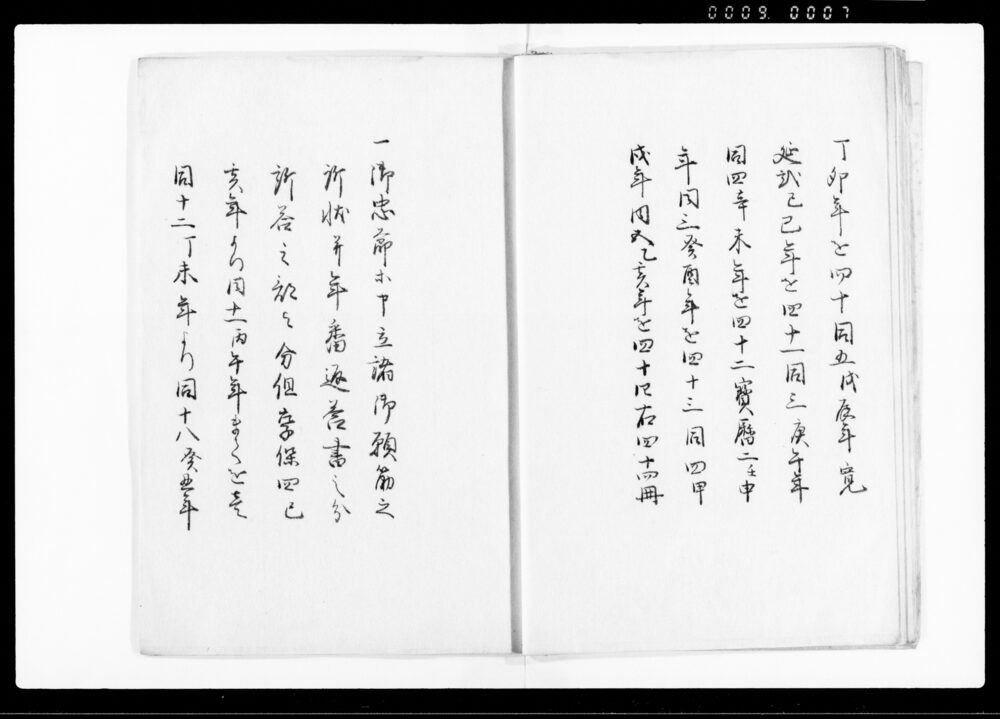 0009 0007
丁卯年を四十同五戊辰年寛
延二己巳年を四十一同三庚午年
同四辛未年を四十二寳暦二壬申
年同三癸酉年を四十三同四甲
戌年同五乙亥年を四十四右四十四冊
一御忠節等申立諸御願筋之
訴状并年番返答書之分
訴答之部と分但享保四己
亥年より同十一丙午年まてを壱
同十二丁未年より同十八癸丑年